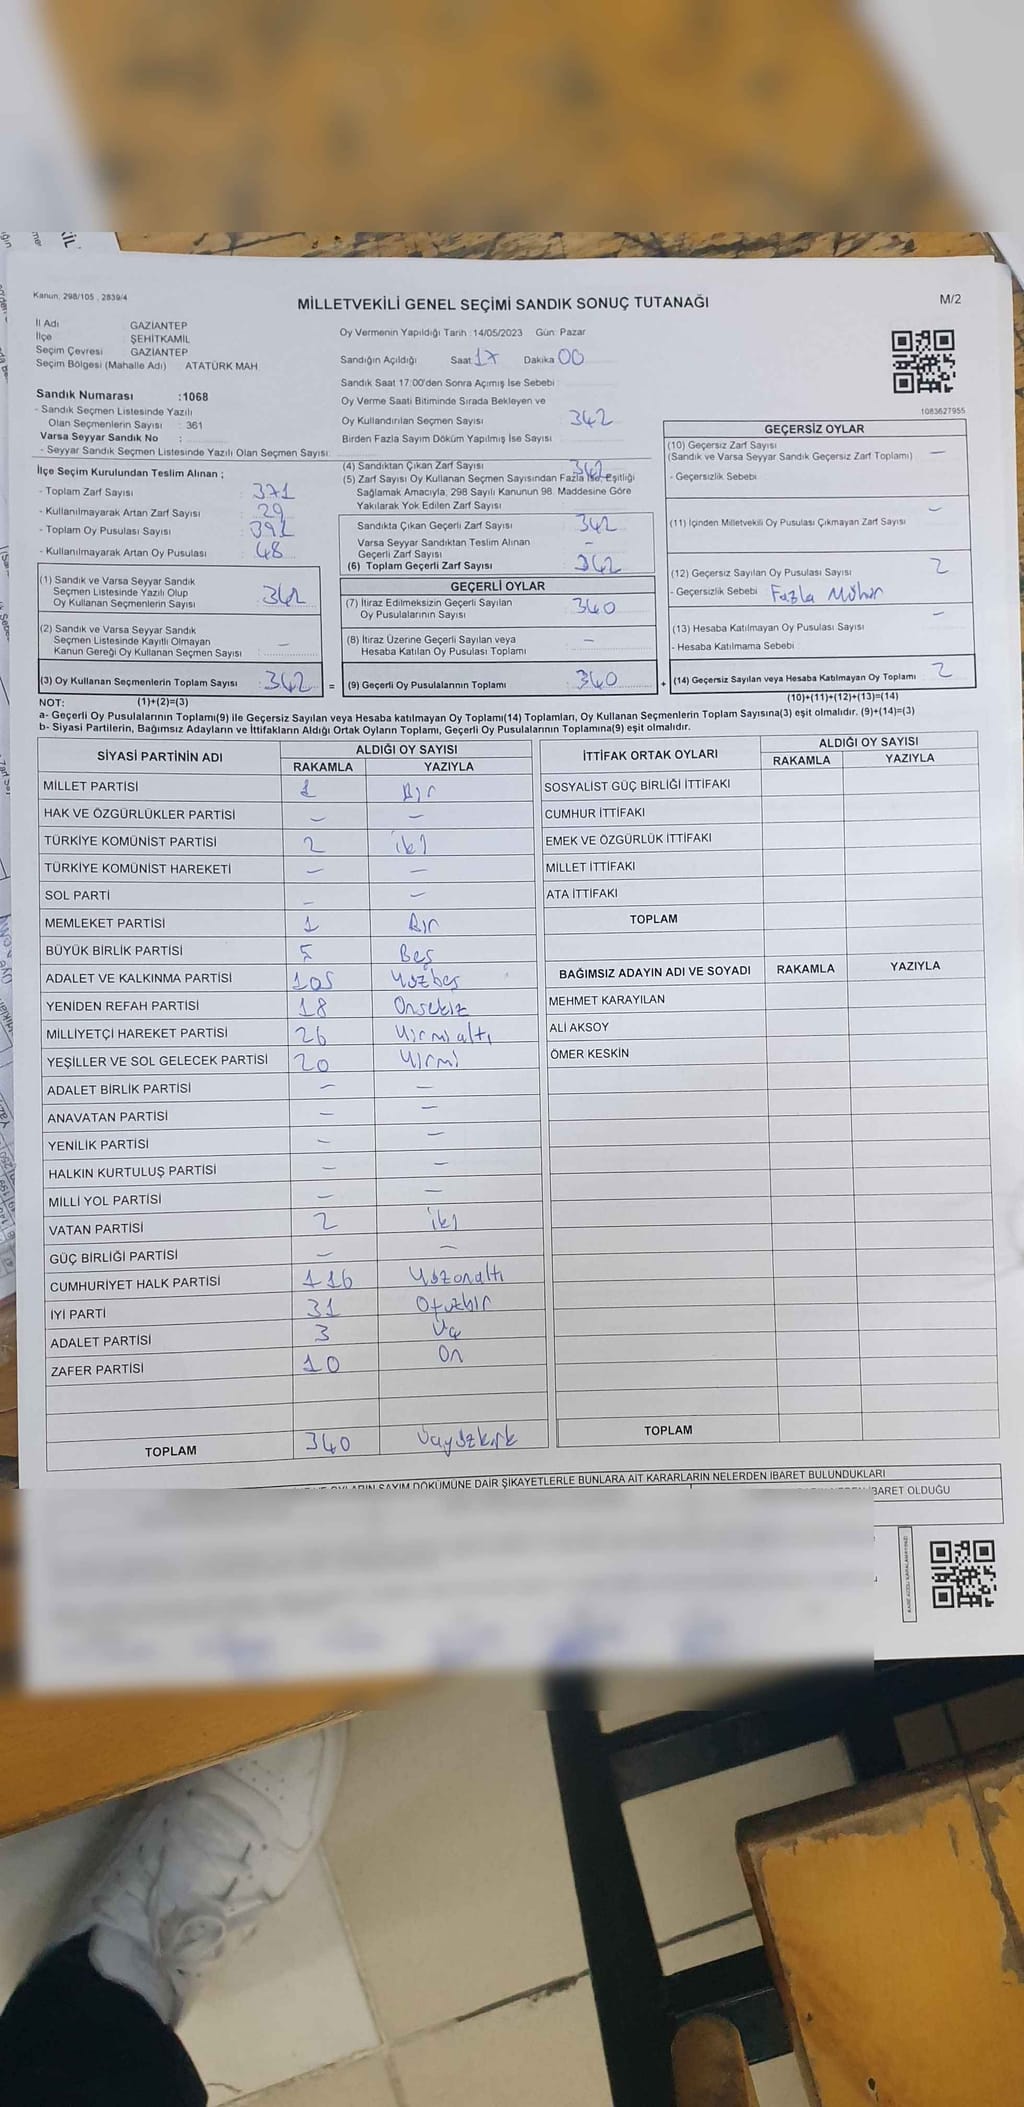 Kanun, 298/105 , 2839/4
MİLLETVEKİLİ GENEL SEÇİMİ SANDIK SONUÇ TUTANAĞI
M/2
İl Adı GAZİANTEP
İlçe ŞEHİTKAMİL
Seçim Çevresi GAZİANTEP
Seçim Bölgesi (Mahalle Adı) ATATÜRK MAH
Sandık Numarası :1068
- Sandık Seçmen Listesinde Yazılı
Olan Seçmenlerin Sayısı : 361
Varsa Seyyar Sandık No :
- Seyyar Sandık Seçmen Listesinde Yazılı Olan Seçmen Sayısı:
İlçe Seçim Kurulundan Teslim Alınan ;
- Toplam Zarf Sayısı : 371
- Kullanılmayarak Artan Zarf Sayısı : 29
- Toplam Oy Pusulası Sayısı : 391
- Kullanılmayarak Artan Oy Pusulası : 48
(1) Sandık ve Varsa Seyyar Sandık
Seçmen Listesinde Yazılı Olup
Oy Kullanan Seçmenlerin Sayısı : 342
(2) Sandık ve Varsa Seyyar Sandık
Seçmen Listesinde Kayıtlı Olmayan
Kanun Gereği Oy Kullanan Seçmen Sayısı : —
(3) Oy Kullanan Seçmenlerin Toplam Sayısı : 342 =
Oy Vermenin Yapıldığı Tarih :14/05/2023 Gün: Pazar
Sandığın Açıldığı Saat 17 Dakika 00
Sandık Saat 17:00'den Sonra Açımış İse Sebebi :
Oy Verme Saati Bitiminde Sırada Bekleyen ve
Oy Kullandırılan Seçmen Sayısı : 342
Birden Fazla Sayım Döküm Yapılmış İse Sayısı :
(4) Sandıktan Çıkan Zarf Sayısı 342
(5) Zarf Sayısı Oy Kullanan Seçmen Sayısından Fazla İse, Eşitliği
Sağlamak Amacıyla, 298 Sayılı Kanunun 98. Maddesine Göre
Yakılarak Yok Edilen Zarf Sayısı
Sandıkta Çıkan Geçerli Zarf Sayısı : 342
Varsa Seyyar Sandıktan Teslim Alınan
Geçerli Zarf Sayısı : –
(6) Toplam Geçerli Zarf Sayısı : 342
GEÇERLİ OYLAR
(7) İtiraz Edilmeksizin Geçerli Sayılan
Oy Pusulalarının Sayısı : 340
(8) İtiraz Üzerine Geçerli Sayılan veya
Hesaba Katılan Oy Pusulası Toplamı : –
(9) Geçerli Oy Pusulalarının Toplamı : 340 +
1083627955
GEÇERSİZ OYLAR
(10) Geçersiz Zarf Sayısı
(Sandık ve Varsa Seyyar Sandık Geçersiz Zarf Toplamı) : —
- Geçersizlik Sebebi :
(11) İçinden Milletvekili Oy Pusulası Çıkmayan Zarf Sayısı : –
(12) Geçersiz Sayılan Oy Pusulası Sayısı : 2
- Geçersizlik Sebebi : Fazla Mühür
(13) Hesaba Katılmayan Oy Pusulası Sayısı : –
- Hesaba Katılmama Sebebi :
(14) Geçersiz Sayılan veya Hesaba Katılmayan Oy Toplamı : 2
NOT: (1)+(2)=(3)
(10)+(11)+(12)+(13)=(14)
a- Geçerli Oy Pusulalarının Toplamı(9) ile Geçersiz Sayılan veya Hesaba katılmayan Oy Toplamı(14) Toplamları, Oy Kullanan Seçmenlerin Toplam Sayısına(3) eşit olmalıdır. (9)+(14)=(3)
b- Siyasi Partilerin, Bağımsız Adayların ve İttifakların Aldığı Ortak Oyların Toplamı, Geçerli Oy Pusulalarının Toplamına(9) eşit olmalıdır.
SİYASİ PARTİNİN ADI ALDIĞI OY SAYISI
RAKAMLA YAZIYLA
MİLLET PARTİSİ 1 Bir
HAK VE ÖZGÜRLÜKLER PARTİSİ — —
TÜRKİYE KOMÜNİST PARTİSİ 2 iki
TÜRKİYE KOMÜNİST HAREKETİ — —
SOL PARTİ — —
MEMLEKET PARTİSİ 1 Bir
BÜYÜK BİRLİK PARTİSİ 5 Beş
ADALET VE KALKINMA PARTİSİ 105 Yüzbeş
YENİDEN REFAH PARTİSİ 18 Onsekiz
MİLLİYETÇİ HAREKET PARTİSİ 26 Yirmialtı
YEŞİLLER VE SOL GELECEK PARTİSİ 20 Yirmi
ADALET BİRLİK PARTİSİ — —
ANAVATAN PARTİSİ — —
YENİLİK PARTİSİ — —
HALKIN KURTULUŞ PARTİSİ — —
MİLLİ YOL PARTİSİ — —
VATAN PARTİSİ 2 iki
GÜÇ BİRLİĞİ PARTİSİ — —
CUMHURİYET HALK PARTİSİ 116 Yüzonaltı
İYİ PARTİ 31 Otuzbir
ADALET PARTİSİ 3 Üç
ZAFER PARTİSİ 10 On
TOPLAM 340 Üçyüzkırk
İTTİFAK ORTAK OYLARI ALDIĞI OY SAYISI
RAKAMLA YAZIYLA
SOSYALİST GÜÇ BİRLİĞİ İTTİFAKI
CUMHUR İTTİFAKI
EMEK VE ÖZGÜRLÜK İTTİFAKI
MİLLET İTTİFAKI
ATA İTTİFAKI
TOPLAM
BAĞIMSIZ ADAYIN ADI VE SOYADI RAKAMLA YAZIYLA
MEHMET KARAYILAN
ALİ AKSOY
ÖMER KESKİN
TOPLAM
SAYIM DÖKÜMÜNE DAİR ŞİKAYETLERLE BUNLARA AİT KARARLARIN NELERDEN İBARET BULUNDUKLARI
İBARET OLDUĞU